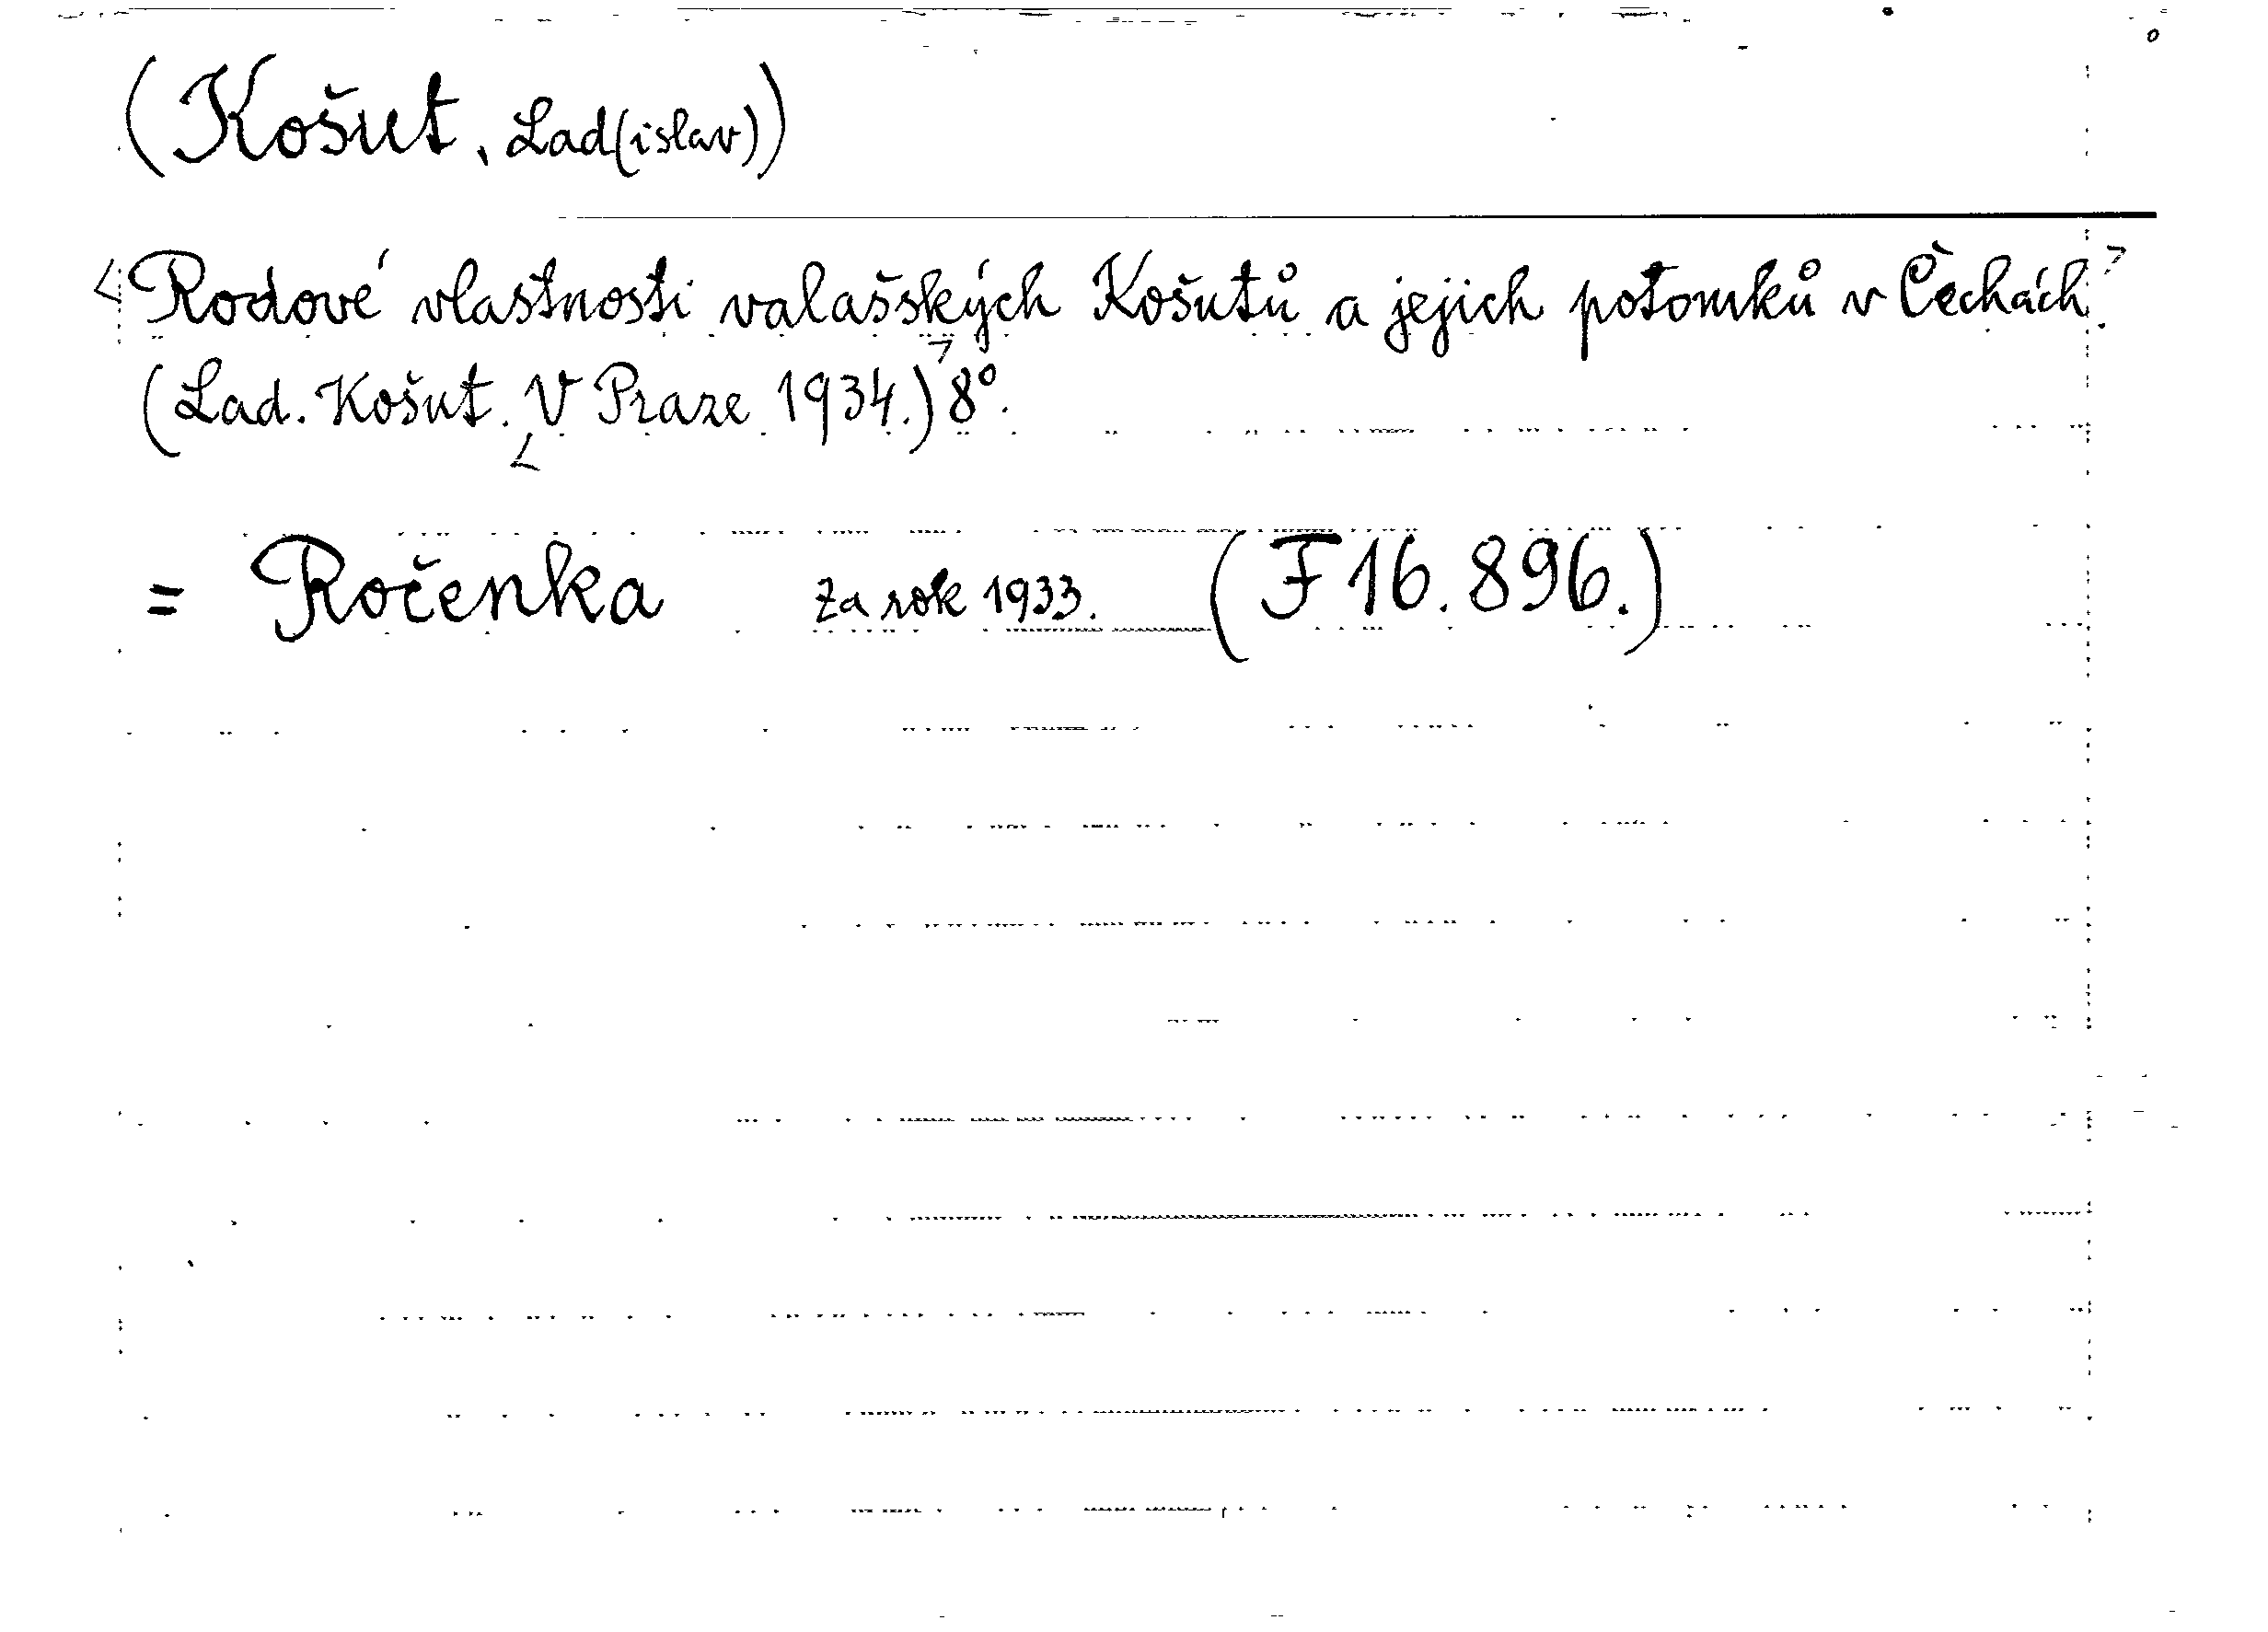 (Košut, Lad(islav))
<Rodové vlastnosti valašských Košutů a jejich potomků v Čechách.>
(Lad. Košut. <V Praze 1934.)> 8°.
= Ročenka za rok 1933. (F 16.896.)